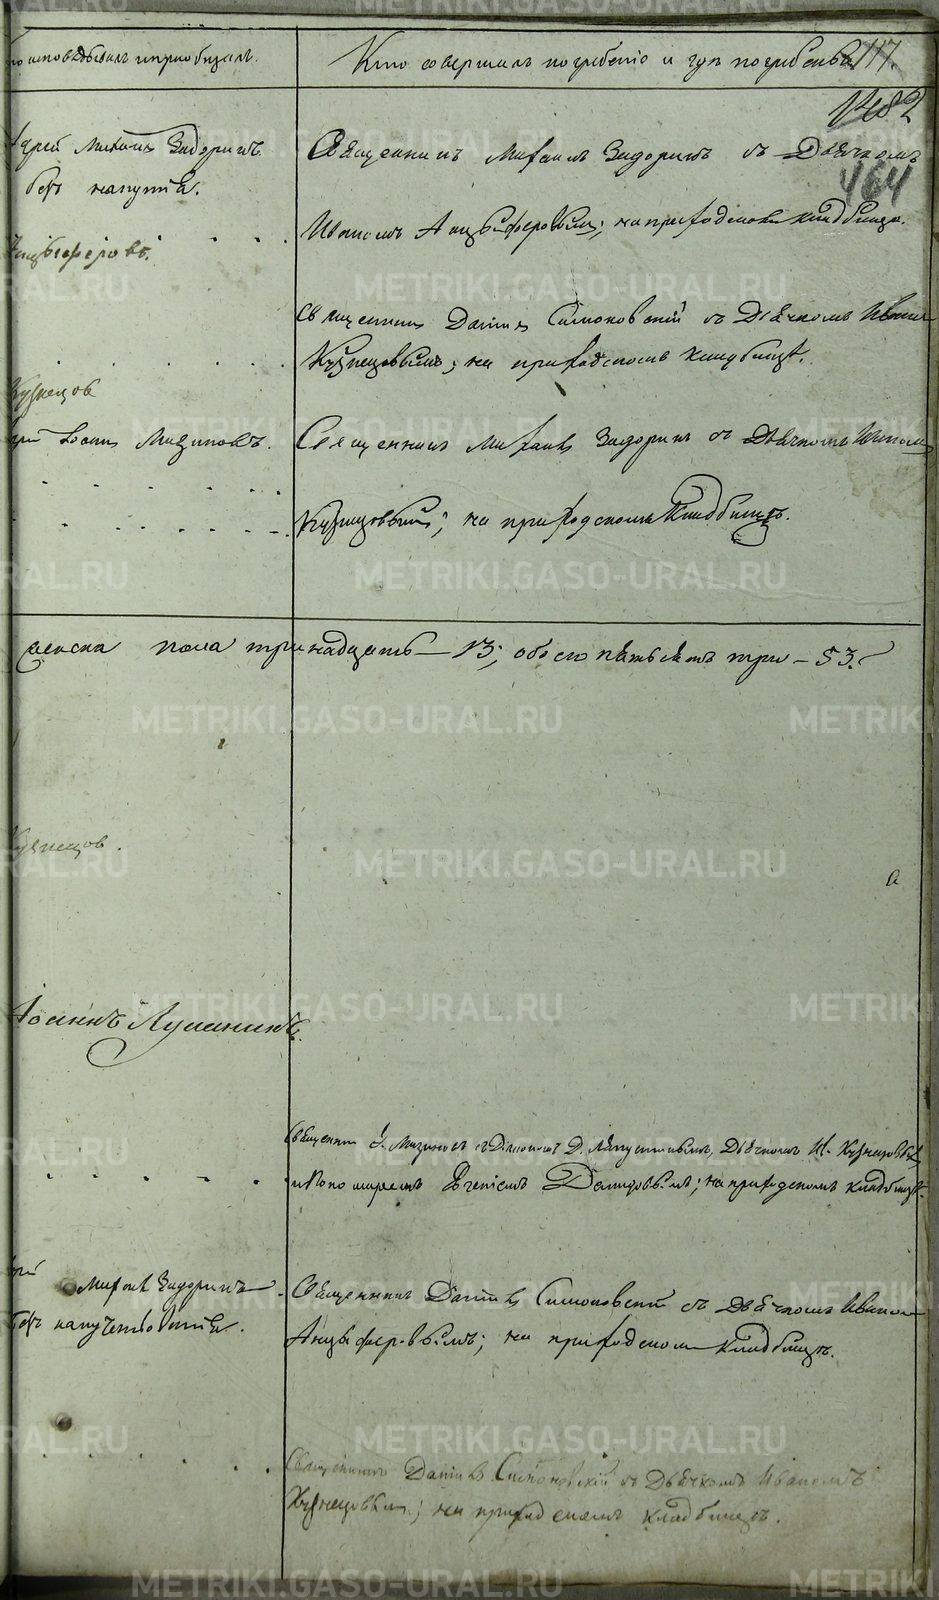 исповѣдывалъ и пріобщалъ.
Кто совершалъ погребеніе и гдѣ погребены
117.
464
Іерей Михаилъ Задоринъ.
безъ напутія.
Священникъ Михаилъ Задоринъ съ Дьячкомъ
Иваномъ Анцыферовымъ; на приходскомъ кладбищѣ.
Анцыферовъ.
Священникъ Даніилъ Симоновскій съ Дьячкомъ Иваномъ
Кузнецовымъ; на приходскомъ кладбищѣ.
Кузнецов
Іерей Іоаннъ Мизиновъ.
Священникъ Михаилъ Задоринъ съ Дьячкомъ Иваномъ
Кузнецовымъ; на приходскомъ кладбищѣ.
женска пола тринадцать — 13; обоего пятьдесятъ три — 53.
Кузнецов.
Іоаннъ Лушанинъ.
Священникъ І. Мизиновъ съ Діакономъ Д. Дьячкомъ И. Кузнецовымъ
и Пономаремъ Евгеніемъ Давидовымъ; на приходскомъ кладбищѣ.
Іерей Михаилъ Задоринъ
Безъ напутствія.
Священникъ Даніилъ Симоновскій съ Дьячкомъ Иваномъ
Анцыферовымъ; на приходскомъ кладбищѣ.
Священникъ Даніилъ Симоновскій съ Дьячкомъ Иваномъ
Кузнецовымъ; на приходскомъ кладбищѣ.
METRIKI.GASO-URAL.RU